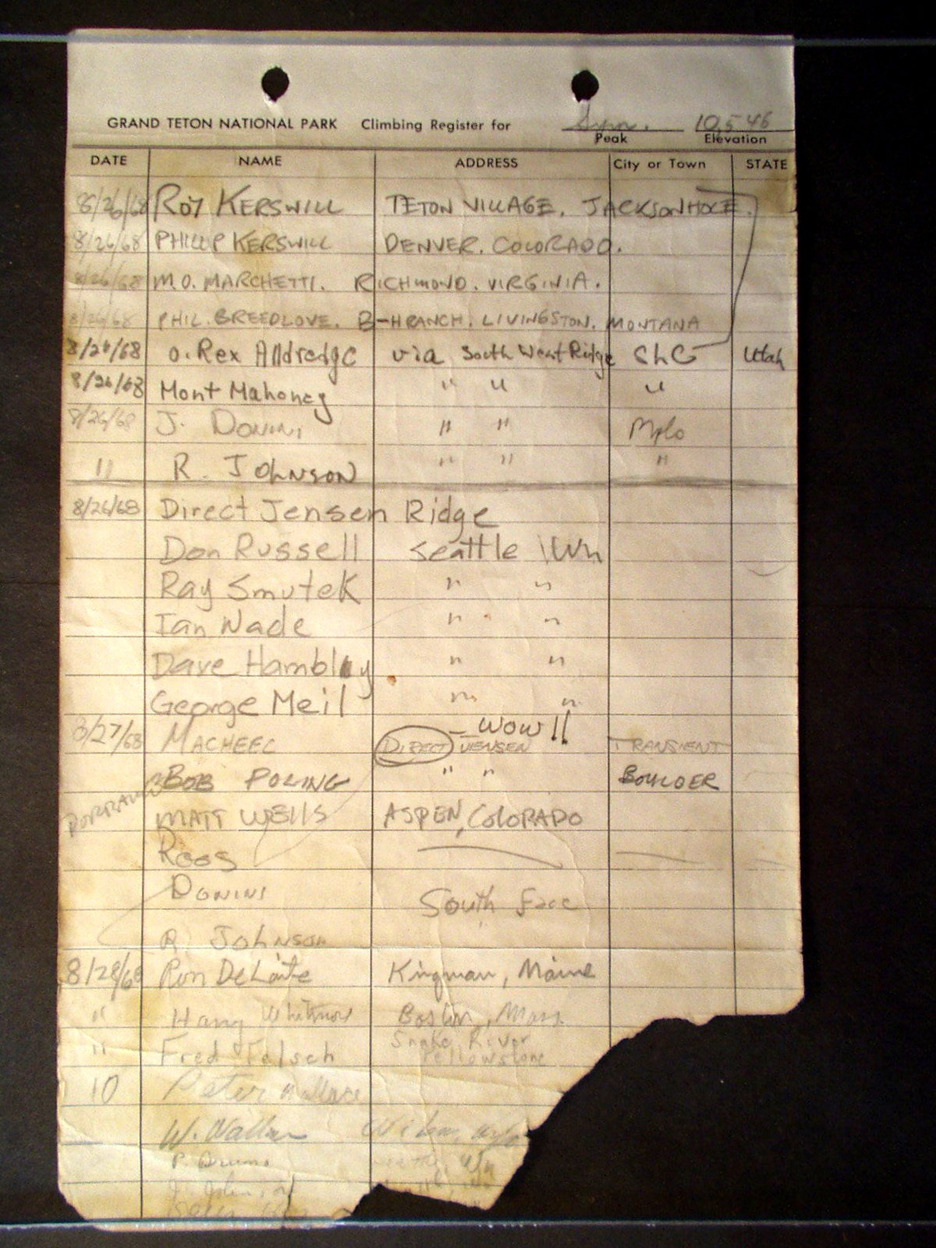 GRAND TETON NATIONAL PARK Climbing Register for 10,546
Peak Elevation
DATE NAME ADDRESS City or Town STATE
8/26/68 ROY KERSWILL TETON VILLAGE, JACKSON HOLE.
8/26/68 PHILLIP KERSWILL DENVER. COLORADO.
8/26/68 M.O. MARCHETTI. RICHMOND. VIRGINIA.
8/26/68 PHIL. BREEDLOVE. B-HRANCH. LIVINGSTON. MONTANA
8/26/68 O. Rex Alldredge via South West Ridge SLC Utah
8/26/68 Mont Mahoney " " "
8/26/68 J. DONINI " "
11 R. JOHNSON " " "
8/26/68 Direct Jensen Ridge
Don Russell Seattle Wn
Ray Smutek " "
Ian Wade " "
Dave Hambly " "
George Meil " "
WOW!!
8/27/68 MACHEEL DIRECT JENSEN TRANSIENT
BOB POLING " " BOULDER
MATT WELLS ASPEN, COLORADO
Roos
DONINI South Face
R JOHNSON
8/28/68 Ron DeLaite Kingman, Maine
" Harry Whitmore Boston, Mass.
" Fred Felsch Snake River
Yellowstone
10 Peter Wallace
W.
P.